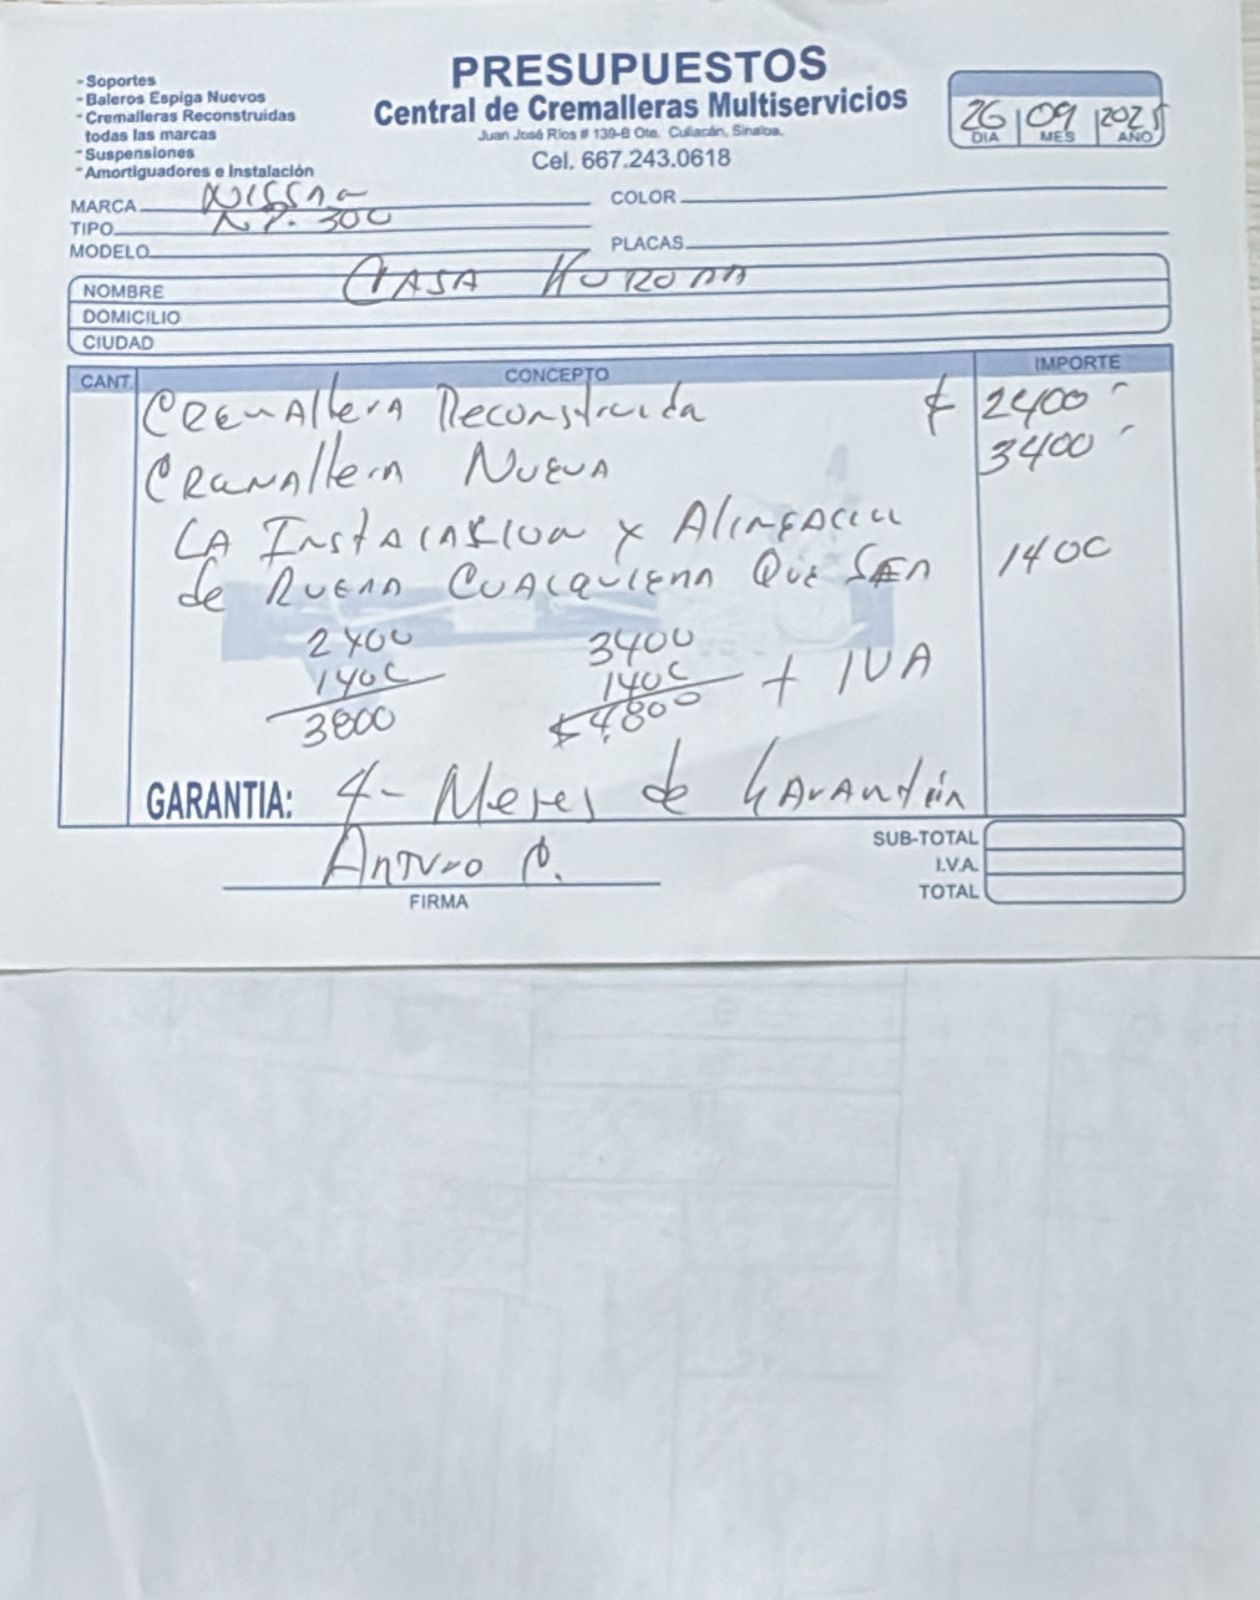 PRESUPUESTOS
Central de Cremalleras Multiservicios
Juan José Ríos # 139-B Ote. Culiacán, Sinaloa.
Cel. 667.243.0618
- Soportes
- Baleros Espiga Nuevos
- Cremalleras Reconstruidas
todas las marcas
- Suspensiones
- Amortiguadores e Instalación
26 09 2025
DIA MES AÑO
MARCA Nissan
COLOR
TIPO NP. 300
MODELO
PLACAS
NOMBRE CASA KURODA
DOMICILIO
CIUDAD
CANT. CONCEPTO IMPORTE
Cremallera Reconstruida $ 2400
Cremallera Nueva 3400
LA Instalasion y Alineacion
de Rueda Cualquiera Que Sea 1400
2400 3400
1400 1400 + IVA
3800 $4,800
GARANTIA: 4- Meses de Garantia
Arturo C.
FIRMA
SUB-TOTAL
I.V.A.
TOTAL